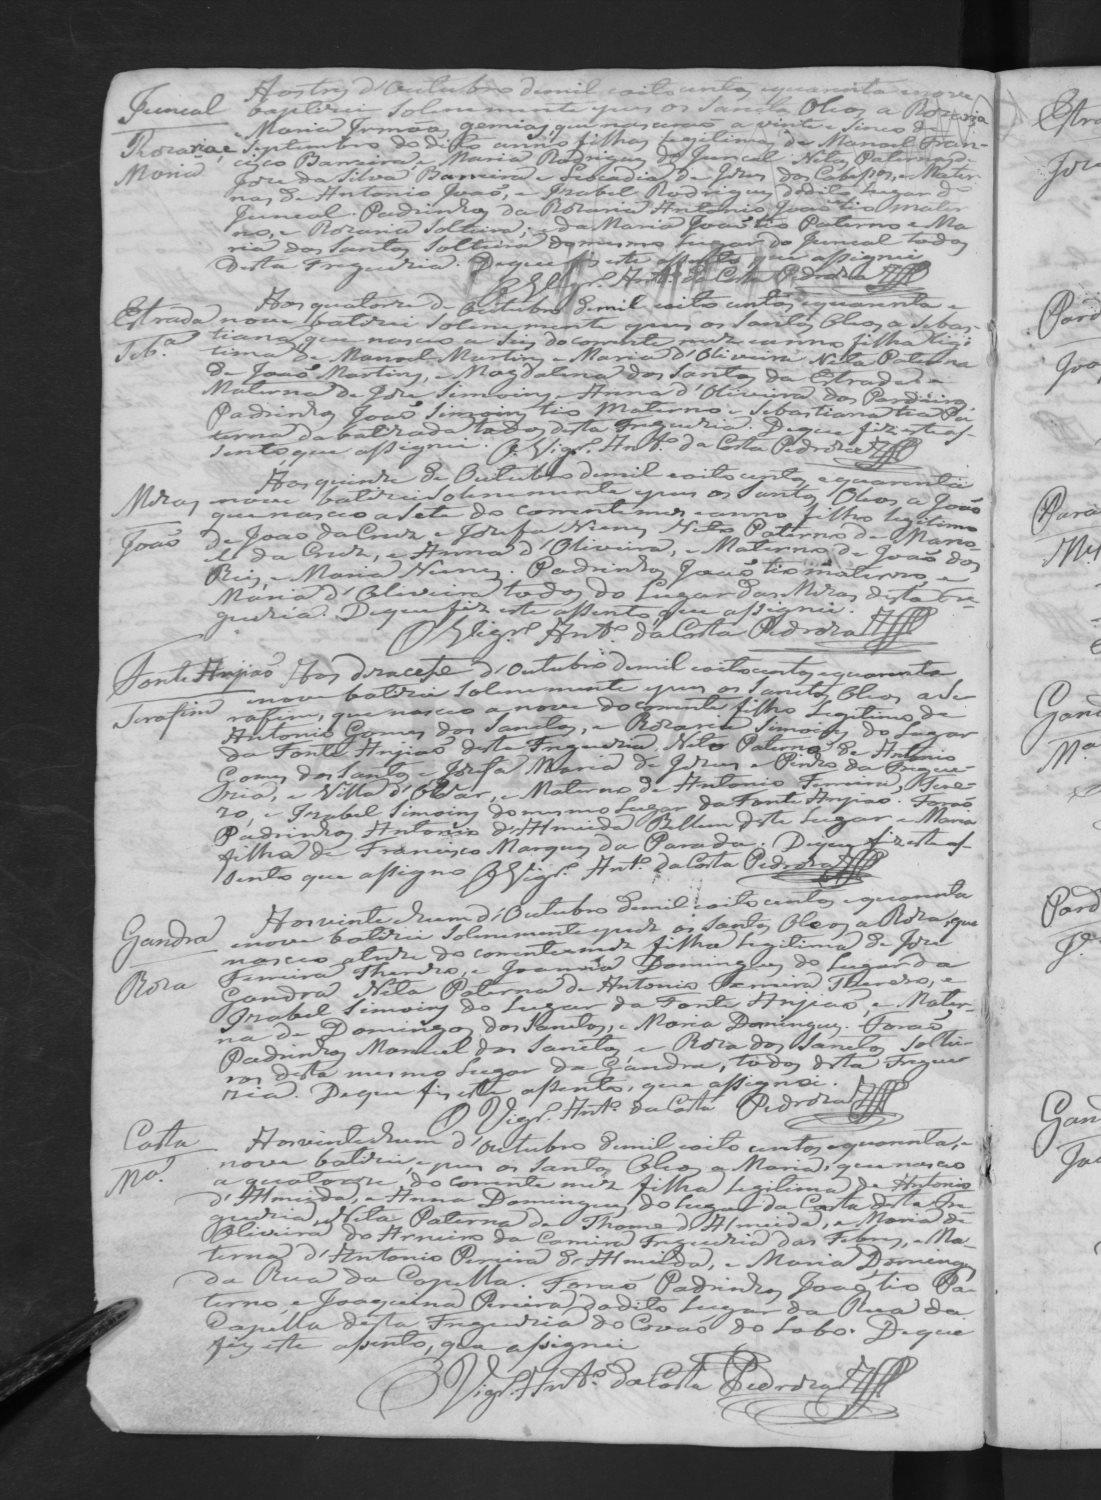 Junceal
Rozaria, e
Maria
Aos tres d'Outubro de mil oito centos e quarenta e nove
baptizei solenemente e pus os Santos Oleos a Rozaria
e Maria Irmãas gemias, que nascerão a vinte e sinco de
Septembro do dito anno filhas legitimas de Manoel Fran-
cisco Barreira e Maria Rodrigues do Junceal Netas Paternas de
Joze da Silva Barreira e Leocadia de Jezus dos Cabeços, e Mater-
nas de Antonio João, e Izabel Rodrigues do dito Lugar do
Junceal. Padrinhos da Rozaria Antonio João tio mater-
no, e Rozaria Solteira; e da Maria João tio Paterno e Ma-
ria dos Santos Solteira do mesmo Lugar do Junceal todos
desta Freguezia. De que fiz este assento que assignei
O Vigr.º Ant.º da Costa Pedroza
Estrada
Seb.ª
Aos quatorze de Outubro de mil oito centos e quarenta e
nove batizei solenemente e pus os Santos Oleos a Sebas-
tiana, que nasceo a seis do corrente mez e anno filha legi-
tima de Manoel Martins e Maria d'Oliveira Neta Paterna
de João Martins, e Magdalena dos Santos da Estrada e
Materna de Joze Simoins e Anna d'Oliveira dos Pardieiros
Padrinhos João Simoins tio Materno e Sebastiana tia Pa-
terna da batizada todos desta Freguezia. De que fiz este as-
sento, que assignei. O Vigr.º Ant.º da Costa Pedroza
Miras
João
Aos quinze de Outubro de mil e oito centos e quarenta e
nove batizei solenemente e pus os Santos Oleos a João
que nasceo a sete do corrente mez e anno filho legitimo
de Joao da Cruz e Jozefa Nunes Neto Paterno de Mano-
el da Cruz, e Anna d'Oliveira, e Materno de João dos
Reis, e Maria Nunes. Padrinhos João tio materno, e
Maria d'Oliveira todos do Lugar das Miras desta Fre-
guezia. De que fiz este assento, que assignei.
O Vigr.º Ant.º da Costa Pedroza
Fonte Anjião
Serafim
Aos dezacete d'Outubro de mil oito centos e quarenta
e nove batizei solenemente e pus os Santos Oleos a Se-
rafim, que nasceo a nove do corrente filho Legitimo de
Antonio Gomes dos Santos, e Rozaria Simoins do Lugar
da Fonte Anjiaõ desta Freguezia. Neto Paterno de Antonio
Gomes dos Santos e Jozefa Maria de Jezus
ria, e Villa d'Ovar, e Materno de Antonio Ferreira
ro, e Izabel Simoins do mesmo Lugar da Fonte Anjiao. Foraõ
Padrinhos Antonio d'Almeida Bellem deste Lugar e Maria
filha de Francisco Marques da Parada. De que fiz este as-
sento que assigno O Vigr.º Ant.º da Costa Pedroza
Gandra
Roza
Aos vinte e hum d'Outubro de mil oito centos e quarenta
e nove batizei solenemente e puz os Santos Oleos a Roza, que
nasceo a onze do corrente mez filha Legitima de Joze
Ferreira Thendro, e Joanna Domingues do Lugar da
Gandra Neta Paterna de Antonio Ferreira Thendro, e
Izabel Simoins do Lugar da Fonte Anjiao, e Mater-
na de Domingos dos Santos, e Maria Domingues. Foraõ
Padrinhos Manuel dos Santos, e Roza dos Santos Soltei-
ros deste mesmo Lugar da Gandra, todos desta Fregue-
zia. De que fiz este assento, que assignei.
O Vigr.º Ant.º da Costa Pedroza
Costa
M.ª
Aos vinte e hum d'Outubro de mil oito centos e quarenta, e
nove batizei, e pus os Santos Oleos a Maria, que nasceo
a quatorze, do corrente mez filha Legitima de Antonio
d'Almeida, e Anna Domingues do Lugar da Costa desta Fre-
guezia, Neta Paterna de Thome d'Almeida, e Maria de
Oliveira do Arneiro da Comira Freguezia das Febres, e Ma-
terna d'Antonio Pereira de Almeida, e Maria Domingues
da Rua da Capella. Forao Padrinhos João tio Pa-
terno, e Joaquina Pereira, do dito Lugar da Rua da
Capella desta Freguezia do Covaõ do Lobo. De que
fiz este assento, que assignei
O Vigr.º Ant.º da Costa Pedroza